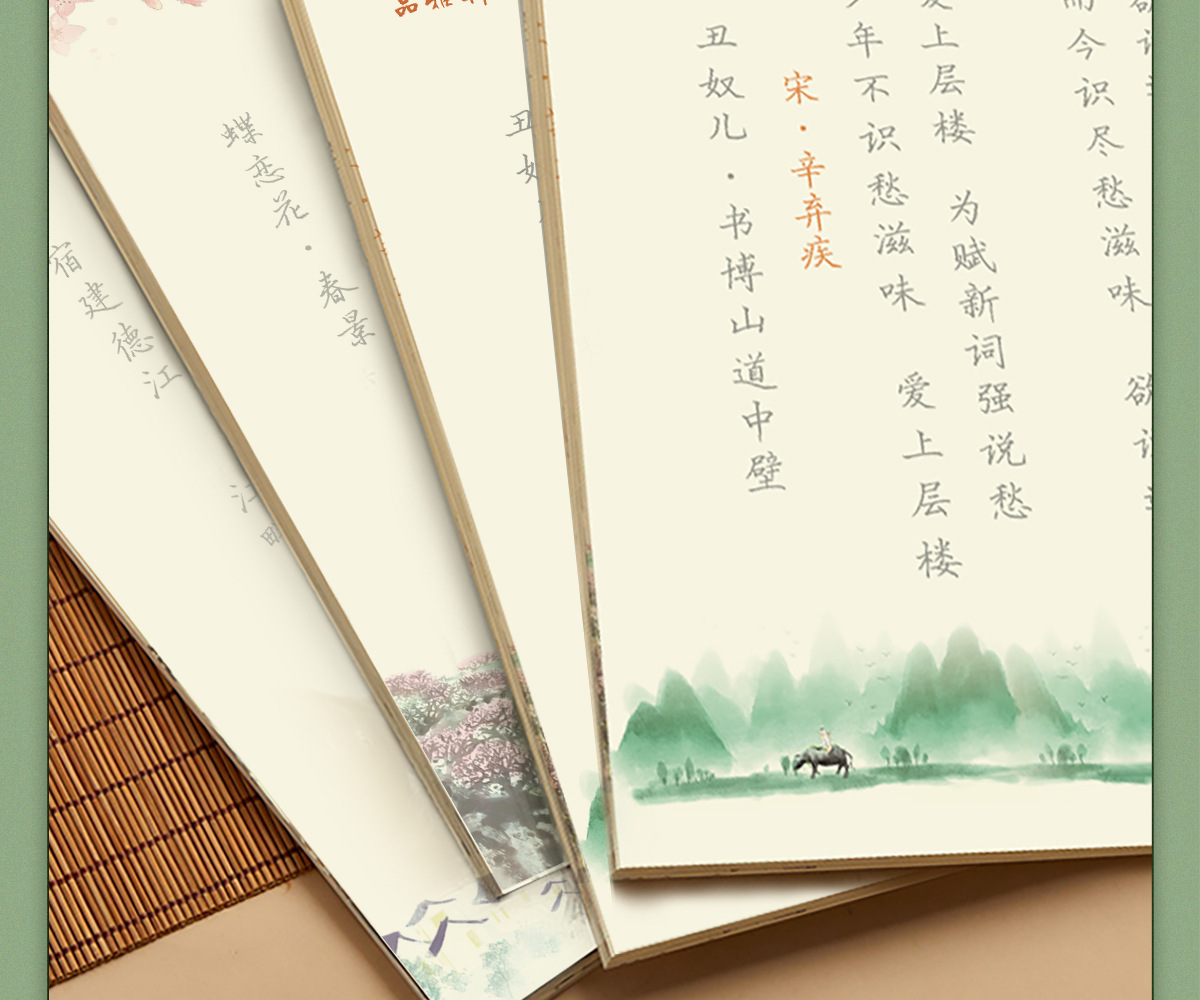 宿建德江
江
蝶恋花·春景
品雅
丑奴
丑奴儿·书博山道中壁
宋·辛弃疾
年不识愁滋味 爱上层楼
爱上层楼 为赋新词强说愁
而今识尽愁滋味
欲说